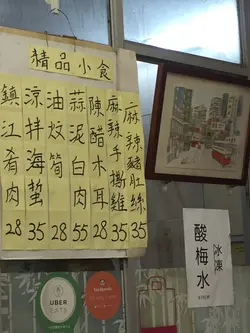 精品小食
鎮江肴肉 28
涼拌海蜇 35
油炆筍 28
蒜泥白肉 55
陳醋木耳 28
麻辣手撕雞 35
麻辣豬肚絲 35
冰凍
酸梅水
UBER
EATS